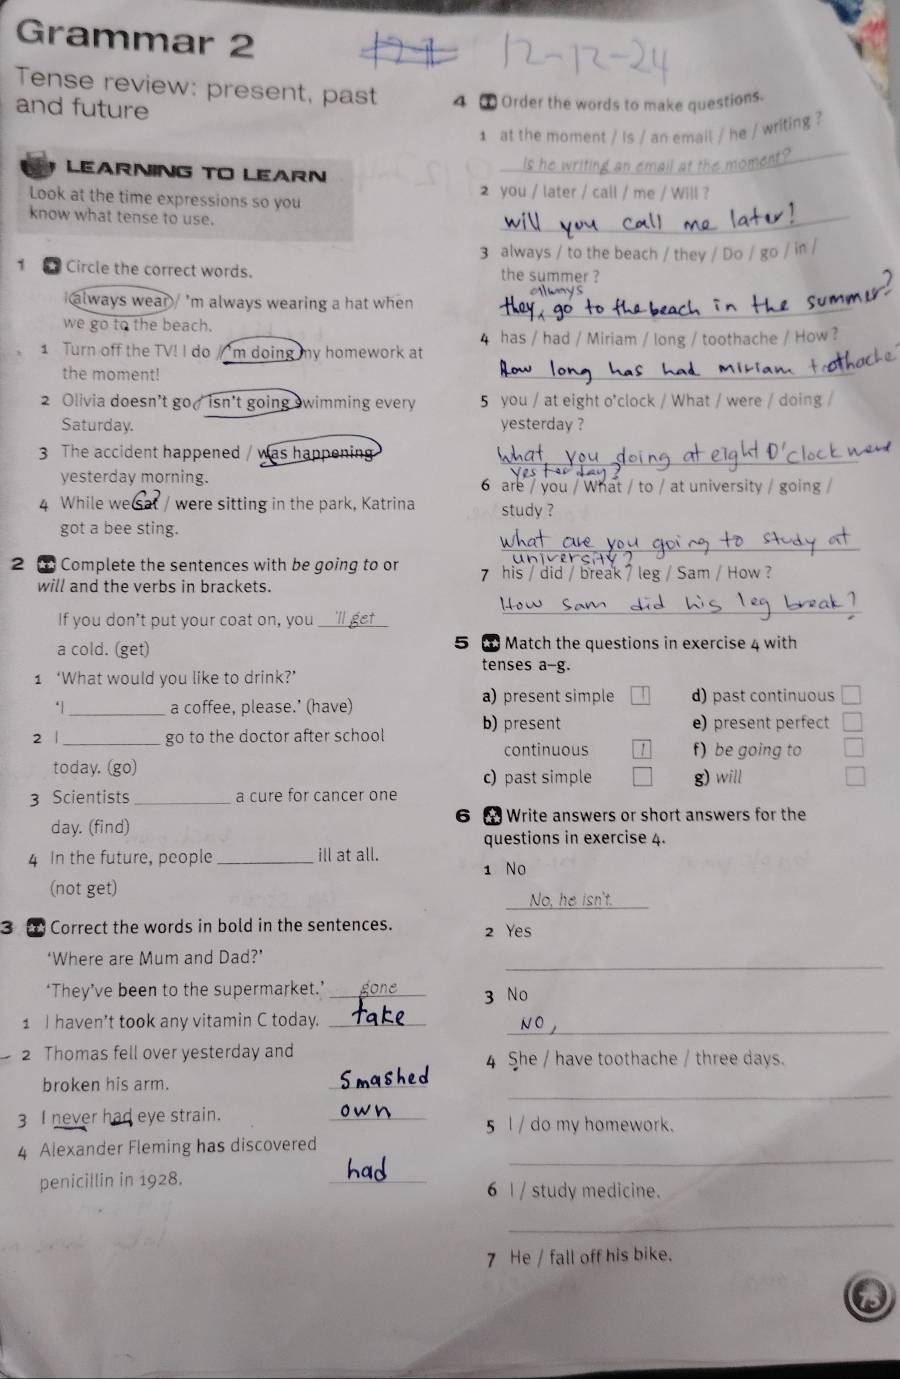 Grammar 2
12-12-24
Tense review: present, past
and future
LEARNING TO LEARN
Look at the time expressions so you
know what tense to use.
1 Circle the correct words.
I always wear / 'm always wearing a hat when
we go to the beach.
1 Turn off the TV! I do / 'm doing my homework at
the moment!
2 Olivia doesn't go / isn't going swimming every
Saturday.
3 The accident happened / was happening
yesterday morning.
4 While we sat / were sitting in the park, Katrina
got a bee sting.
2 Complete the sentences with be going to or
will and the verbs in brackets.
If you don't put your coat on, you 'll get
a cold. (get)
1 'What would you like to drink?'
'I ________ a coffee, please.' (have)
2 I ________ go to the doctor after school
today. (go)
3 Scientists ________ a cure for cancer one
day. (find)
4 In the future, people ________ ill at all.
(not get)
3 Correct the words in bold in the sentences.
'Where are Mum and Dad?'
'They've been to the supermarket.' gone
1 I haven't took any vitamin C today. take
2 Thomas fell over yesterday and
broken his arm. Smashed
3 I never had eye strain. own
4 Alexander Fleming has discovered
penicillin in 1928. had
4 Order the words to make questions.
1 at the moment / Is / an email / he / writing ?
Is he writing an email at the moment?
2 you / later / call / me / Will ?
will you call me later?
3 always / to the beach / they / Do / go / in /
the summer ?
allways
they go to the beach in the summer?
4 has / had / Miriam / long / toothache / How ?
How long has had miriam tothache
5 you / at eight o'clock / What / were / doing /
yesterday ?
What you doing at eight O'clock were
yesterday?
6 are / you / What / to / at university / going /
study ?
what are you going to study at
university?
7 his / did / break / leg / Sam / How ?
How sam did his leg break?
5 Match the questions in exercise 4 with
tenses a-g.
a) present simple 1 d) past continuous
b) present e) present perfect
continuous 1 f) be going to
c) past simple g) will
6 Write answers or short answers for the
questions in exercise 4.
1 No
No, he isn't.
2 Yes
3 No
NO,
4 She / have toothache / three days.
5 I / do my homework.
6 I / study medicine.
7 He / fall off his bike.
75